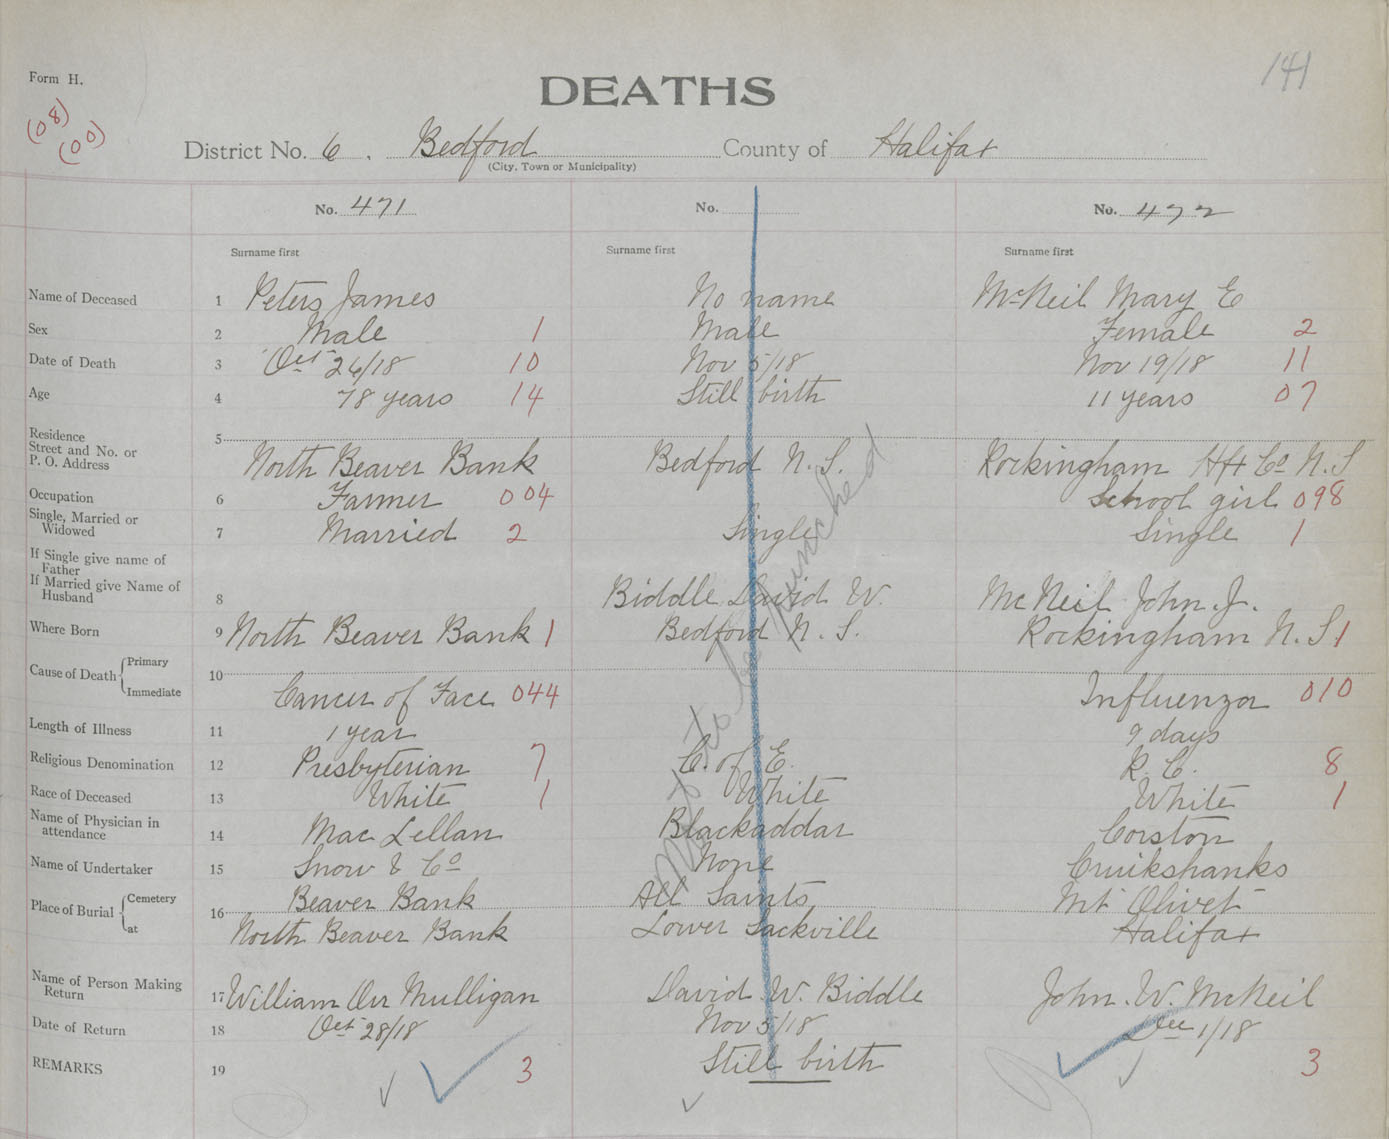 141
Form H.
DEATHS
(08)
(00)
District No. 6. Bedford County of Halifax
(City, Town or Municipality)
No. 471 No. No. 472
Surname first Surname first Surname first
Name of Deceased 1 Peters James No name McNeil Mary E
Sex 2 Male 1 Male Female 2
Date of Death 3 Oct 26/18 10 Nov 5/18 Nov 19/18 11
Age 4 78 years 14 Still birth 11 years 07
Residence
Street and No. or
P. O. Address 5 North Beaver Bank Bedford N. S. Rockingham Hfx Co N. S
Occupation 6 Farmer 004 School girl 098
Single, Married or
Widowed 7 Married 2 Single Single 1
If Single give name of
Father
If Married give Name of
Husband 8 Biddle David W. McNeil John. J.
Where Born 9 North Beaver Bank 1 Bedford N. S. Rockingham N. S 1
Cause of Death Primary 10
Immediate Cancer of Face 044 Influenza 010
Length of Illness 11 1 year 9 days
Religious Denomination 12 Presbyterian 7 C. of E. R. C. 8
Race of Deceased 13 White 1 White White 1
Name of Physician in
attendance 14 Mac Lellan Blackaddar Corston
Name of Undertaker 15 Snow & Co None Cruikshanks
Place of Burial Cemetery 16 Beaver Bank All Saints Mt Olivet
at North Beaver Bank Lower Sackville Halifax
Name of Person Making
Return 17 William Orr Mulligan David W. Biddle John. W. McNeil
Date of Return 18 Oct 28/18 Nov 5/18 Dec 1/18
REMARKS 19 3 Still birth 3
Not to be punched